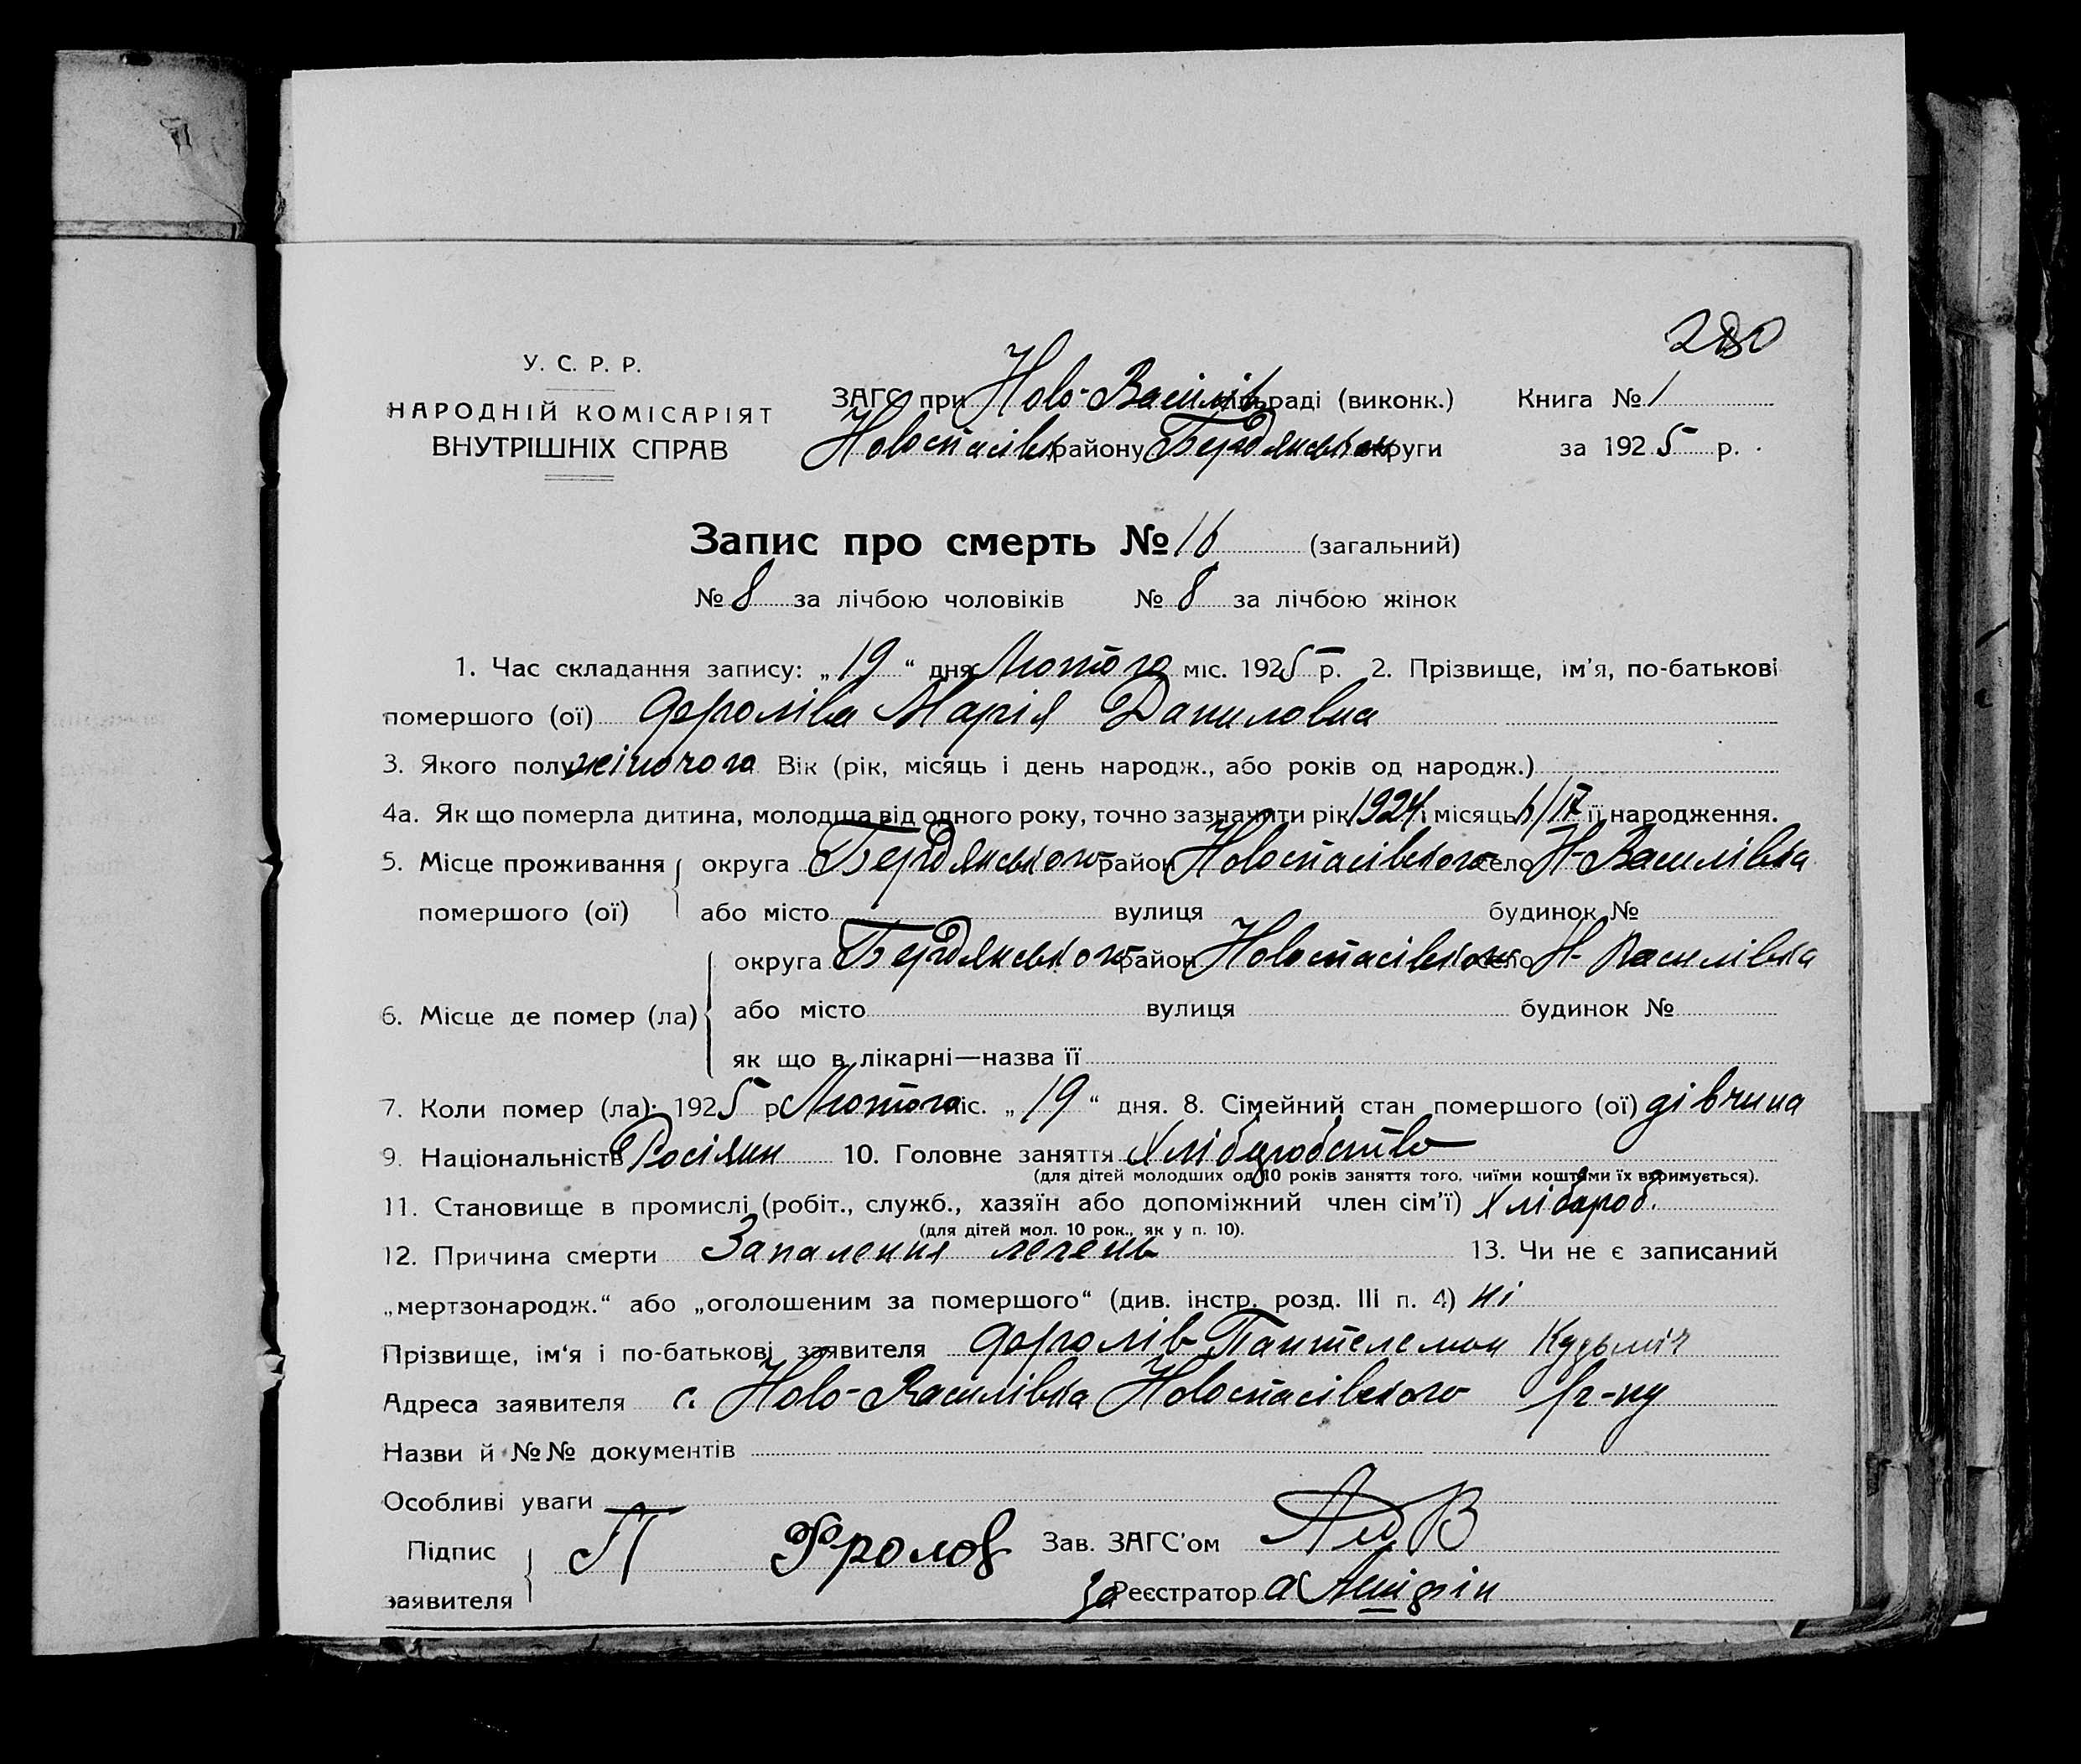 280
У. С. Р. Р.
НАРОДНІЙ КОМІСАРІЯТ
ВНУТРІШНІХ СПРАВ
ЗАГС при Ново-Василів раді (виконк.) Книга № 1
Новоспасівск району Бердянської округи за 1925 р.
Запис про смерть № 16 (загальний)
№ 8 за лічбою чоловіків № 8 за лічбою жінок
1. Час складання запису: „19“ дня Лютого міс. 1925 р. 2. Прізвище, ім'я, по-батькові
помершого (ої) Фроліва Марія Даниловна
3. Якого полу жіночого Вік (рік, місяць і день народж., або років од народж.)
4а. Як що померла дитина, молодша від одного року, точно зазначити рік 1924 і місяць її народження.
5. Місце проживання округа Бердянського район Новоспасівского село Н-Василівка
помершого (ої) або місто вулиця будинок №
округа Бердянського район Новоспасівского село Н-Василівка
6. Місце де помер (ла) або місто вулиця будинок №
як що в лікарні—назва її
7. Коли помер (ла): 1925 р Лютого міс. „19“ дня. 8. Сімейний стан помершого (ої) дівчина
9. Національність Росіяни 10. Головне заняття Хліборобство
(для дітей молодших од 10 років заняття того, чиїми коштами їх втримується).
11. Становище в промислі (робіт., служб., хазяїн або допоміжний член сім'ї) Хлібороб.
(для дітей мол. 10 рок., як у п. 10).
12. Причина смерти Запалення легень 13. Чи не є записаний
„мертзонародж.“ або „оголошеним за помершого“ (див. інстр. розд. III п. 4) ні
Прізвище, ім'я і по-батькові заявителя Фролів Пантелемон Кузьмич
Адреса заявителя с. Ново-Василівка Новоспасівского р-ну
Назви й №№ документів
Особливі уваги
Підпис П Фролов Зав. ЗАГС'ом
заявителя за Реєстратор